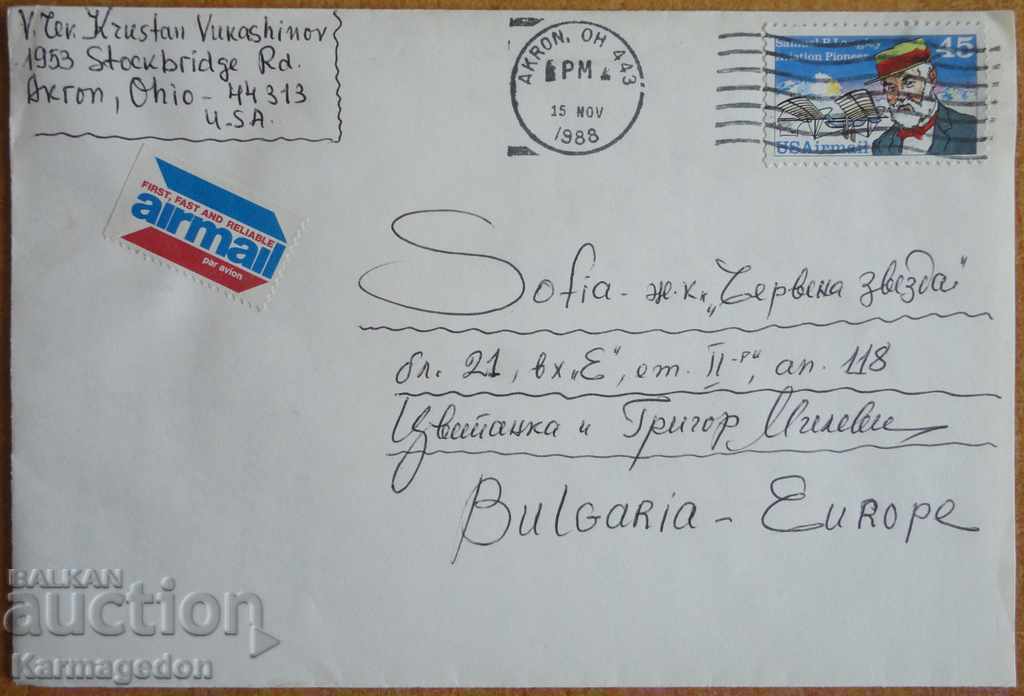 V. Tev. Krustan Vukashinov
1953 Stockbridge Rd.
Akron, Ohio - 44313
U.S.A.
AKRON, OH 443
PM
15 NOV
1988
Samuel P. Langley
Aviation Pioneer
45
USAirmail
FIRST, FAST AND RELIABLE
airmail
par avion
Sofia - ж.к. „Червена звезда"
бл. 21, вх „Е", ет. II-ри, ап. 118
Цветанка и Григор Милеви
BULGARIA - EUROPE
BALKAN
auction
Karmagedon